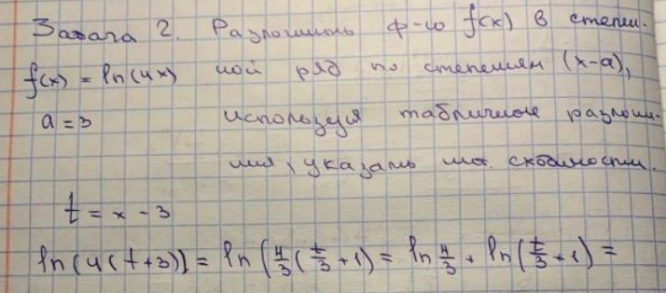 Задача 2. Разложить ф-ю f(x) в степен-
f(x) = ln(4x) ной ряд по степеням (x-a),
a = 3 используя табличное разложе-
ния, указать мн. сходимости.
t = x - 3
ln(4(t+3)) = ln(4/3(t/3 + 1) = ln 4/3 + ln(t/3 + 1) =